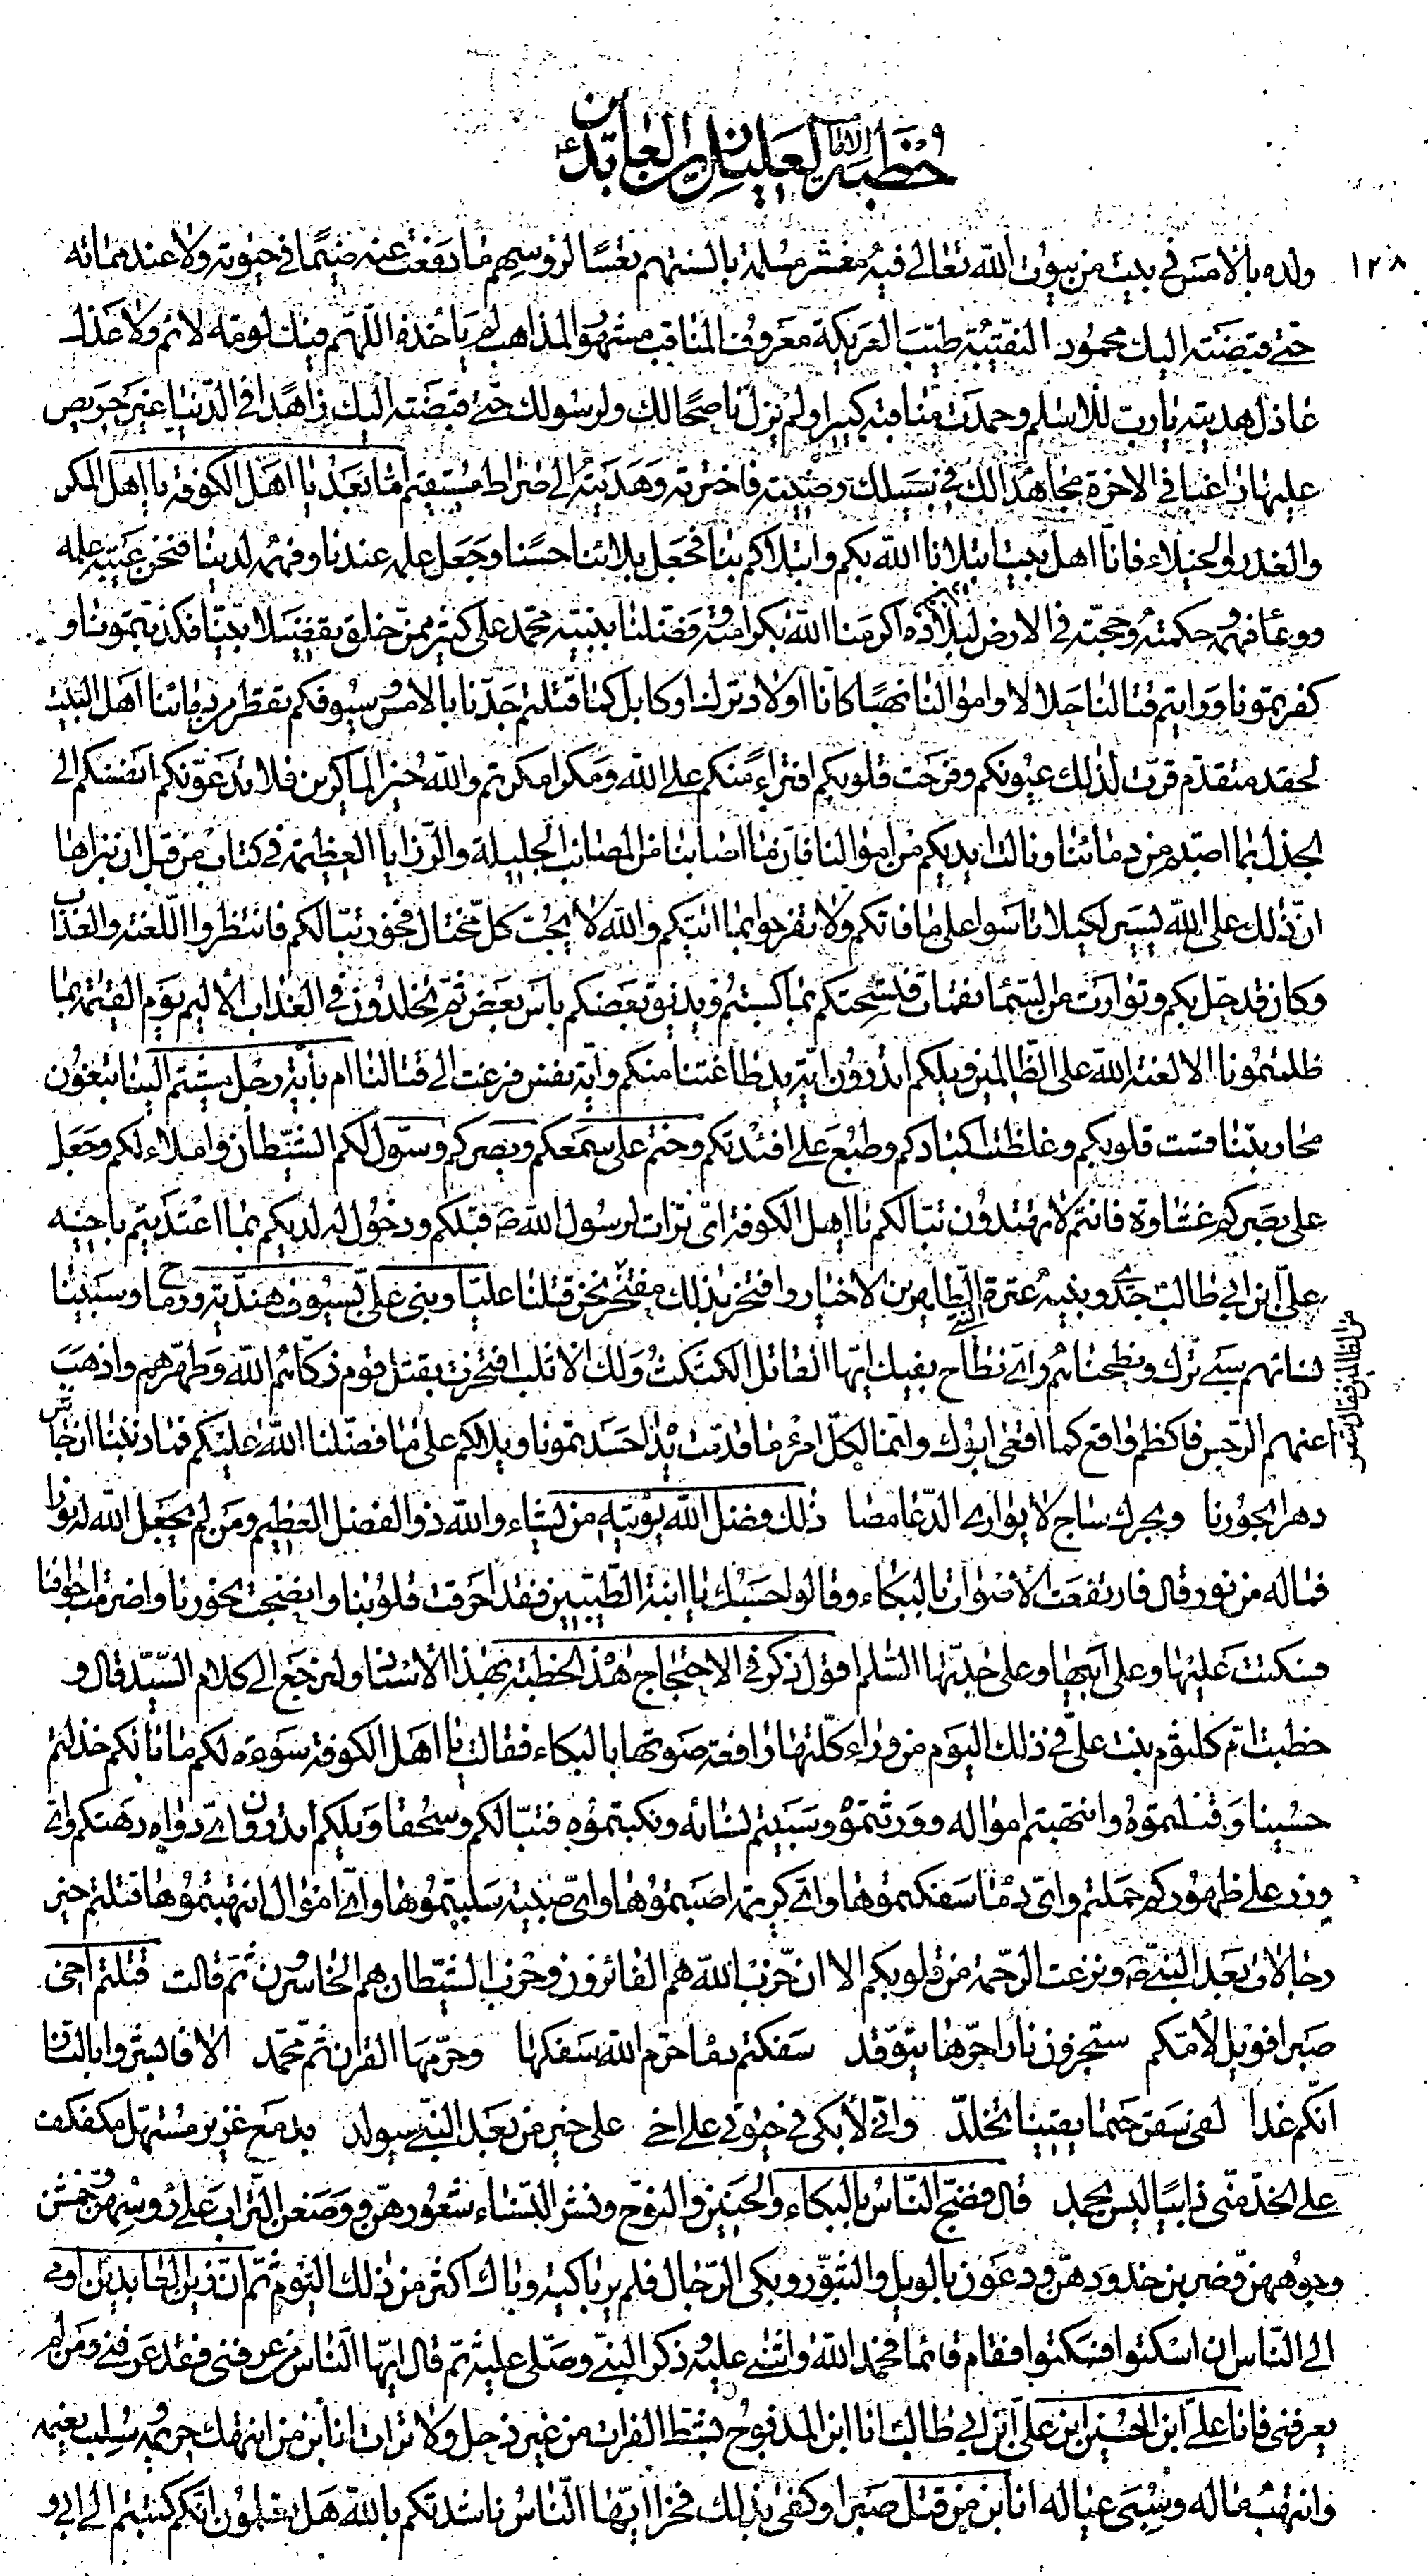 خطبة الامام العليل زين العابدين ع
١٢٨
ولده بالامس في بيت من بيوت الله تعالى فيه معشر مسلمة بالسنتهم تعسا لرؤسهم ما دفعت عنه ضيما في حيوته ولا عند مماته
حتى قبضته اليك محمود النقيبة طيب العريكة معروف المناقب مشهور المذاهب لم ياخذه اللهم فيك لومة لائم ولا عذل
عاذل هديته يا رب للاسلم وحمدت مناقبه كبيرا ولم يزل ناصحا لك ولرسولك حتى قبضته اليك زاهدا في الدنيا غير حريص
عليها راغبا في الاخرة مجاهدا لك في سبيلك رضيته فاخترته وهديته الى صراط مستقيم اما بعد يا اهل الكوفة يا اهل المكر
والغدر والخيلاء فانا اهل بيت ابتلانا الله بكم وابتلاكم بنا فجعل بلائنا حسنا وجعل علمه عندنا وفهمه لدينا فنحن عيبة علمه
ووعاء فهمه وحكمته وحجته في الارض لبلاده اكرمنا الله بكرامته وفضلنا بنبيه محمد على كثير ممن خلق تفضيلا بينا فكذبتمونا و
كفرتمونا ورايتم قتالنا حلالا واموالنا نهبا كانا اولاد ترك او كابل كما قتلتم جدنا بالامس وسيوفكم تقطر من دمائنا اهل البيت
لحقد متقدم قرت لذلك عيونكم وفرحت قلوبكم افتراء منكم على الله ومكرا مكرتم والله خير الماكرين فلا تدعونكم انفسكم الى
الجذل بما اصبتم من دمائنا ونالت ايديكم من اموالنا فان ما اصابنا من المصائب الجليلة والرزايا العظيمة في كتاب من قبل ان نبراها
ان ذلك على الله يسير لكيلا تاسوا على ما فاتكم ولا تفرحوا بما اتيكم والله لا يحب كل مختال فخور تبا لكم فانتظروا اللعنة والعذاب
وكان قد حل بكم وتواترت من السماء نقمات فتسحتكم بما كسبتم ويذيق بعضكم باس بعض ثم تخلدون في العذاب الأليم يوم القيمة بما
ظلمتمونا الا لعنة الله على الظالمين ويلكم اتدرون اية يد طاعنتنا منكم واية نفس فزعت الى قتالنا ام باية رجل مشيتم الينا تبغون
محاربتنا قست قلوبكم وغلظت اكبادكم وطبع على افئدتكم وختم على سمعكم وبصركم وسول لكم الشيطان واملاء لكم وجعل
على بصركم غشاوة فانتم لا تهتدون تبا لكم يا اهل الكوفة اي ترات لرسول الله ص قبلكم وذحول له لديكم بما اعتديتم باخيه
علي ابن ابي طالب جدي وبنيه عترة النبي الطاهرين الاخيار وافتخر بذلك مفتخر نحن قتلنا عليا وبني علي بسيوف هندية ورماح وسبينا
نسائهم سبي ترك ونطحناهم واي نطاح بفيك ايها القائل الكثكث ولك الاثلب افتخرت بقتل قوم زكاهم الله وطهرهم واذهب
عنهم الرجس فاكظم واقع كما اقعى ابوك وانما لكل امرء ما قدمت يداه حسدتمونا ويلا لكم على ما فضلنا الله عليكم فما ذنبنا ان جاش
دهرا بحورنا وبحرك ساج لا يواري الدعامصا ذلك فضل الله يؤتيه من يشاء والله ذو الفضل العظيم ومن لم يجعل الله له نورا
فما له من نور قال فارتفعت الأصوات بالبكاء وقالوا حسبك يا ابنة الطيبين فقد احرقت قلوبنا وانضجت نحورنا واضرمت اجوافنا
فسكتت عليها وعلى ابيها وعلى جدتها السلم اقول ذكر في الاحتجاج هذه الخطبة بهذا الاسناد ولنرجع الى كلام السيد قال و
خطبت ام كلثوم بنت علي في ذلك اليوم من وراء كلتها رافعة صوتها بالبكاء فقالت يا اهل الكوفة سوءة لكم ما بالكم خذلتم
حسينا وقتلتموه وانتهبتم امواله وورثتموه وسبيتم نسائه ونكبتموه فتبا لكم وسحقا ويلكم اتدرون اي دواه دهتكم واي
وزر على ظهوركم حملتم واي دما سفكتموها واي كريمة اصبتموها واي صبية سلبتموها واي اموال انتهبتموها قتلتم خير
رجالات بعد النبي ص ونزعت الرحمة من قلوبكم الا ان حزب الله هم الفائزون وحزب الشيطان هم الخاسرون ثم قالت قتلتم اخي
صبرا فويل لأمكم ستجزون نارا حرها يتوقد سفكتم دماء حرم الله سفكها وحرمها القران ثم محمد الا فابشروا بالنار
انكم غدا لفي سقر حتما يقينا تخلد واني لأبكي في حيوتي على اخي على خير من بعد النبي سيولد بدمع غزير مستهل مكفكف
على الخد مني ذائبا ليس يجمد قال فضج الناس بالبكاء والحنين والنوح ونشر النساء شعورهن ووضعن التراب على رؤسهن وخمشن
وجوههن وضربن خدودهن ودعون بالويل والثبور وبكى الرجال فلم ير باكية وباك اكثر من ذلك اليوم ثم ان زين العابدين اومى
الى الناس ان اسكتوا فسكتوا فقام قائما فحمد الله واثنى عليه وذكر النبي وصلى عليه ثم قال ايها الناس من عرفني فقد عرفني ومن لم
يعرفني فانا علي ابن الحسين ابن علي ابن ابي طالب انا ابن المذبوح بشط الفرات من غير ذحل ولا ترات انا ابن من انتهك حريمه وسلب نعيمه
وانتهب ماله وسبي عياله انا ابن من قتل صبرا وكفى بذلك فخرا ايها الناس ناشدتكم بالله هل تعلمون انكم كتبتم الى ابي و